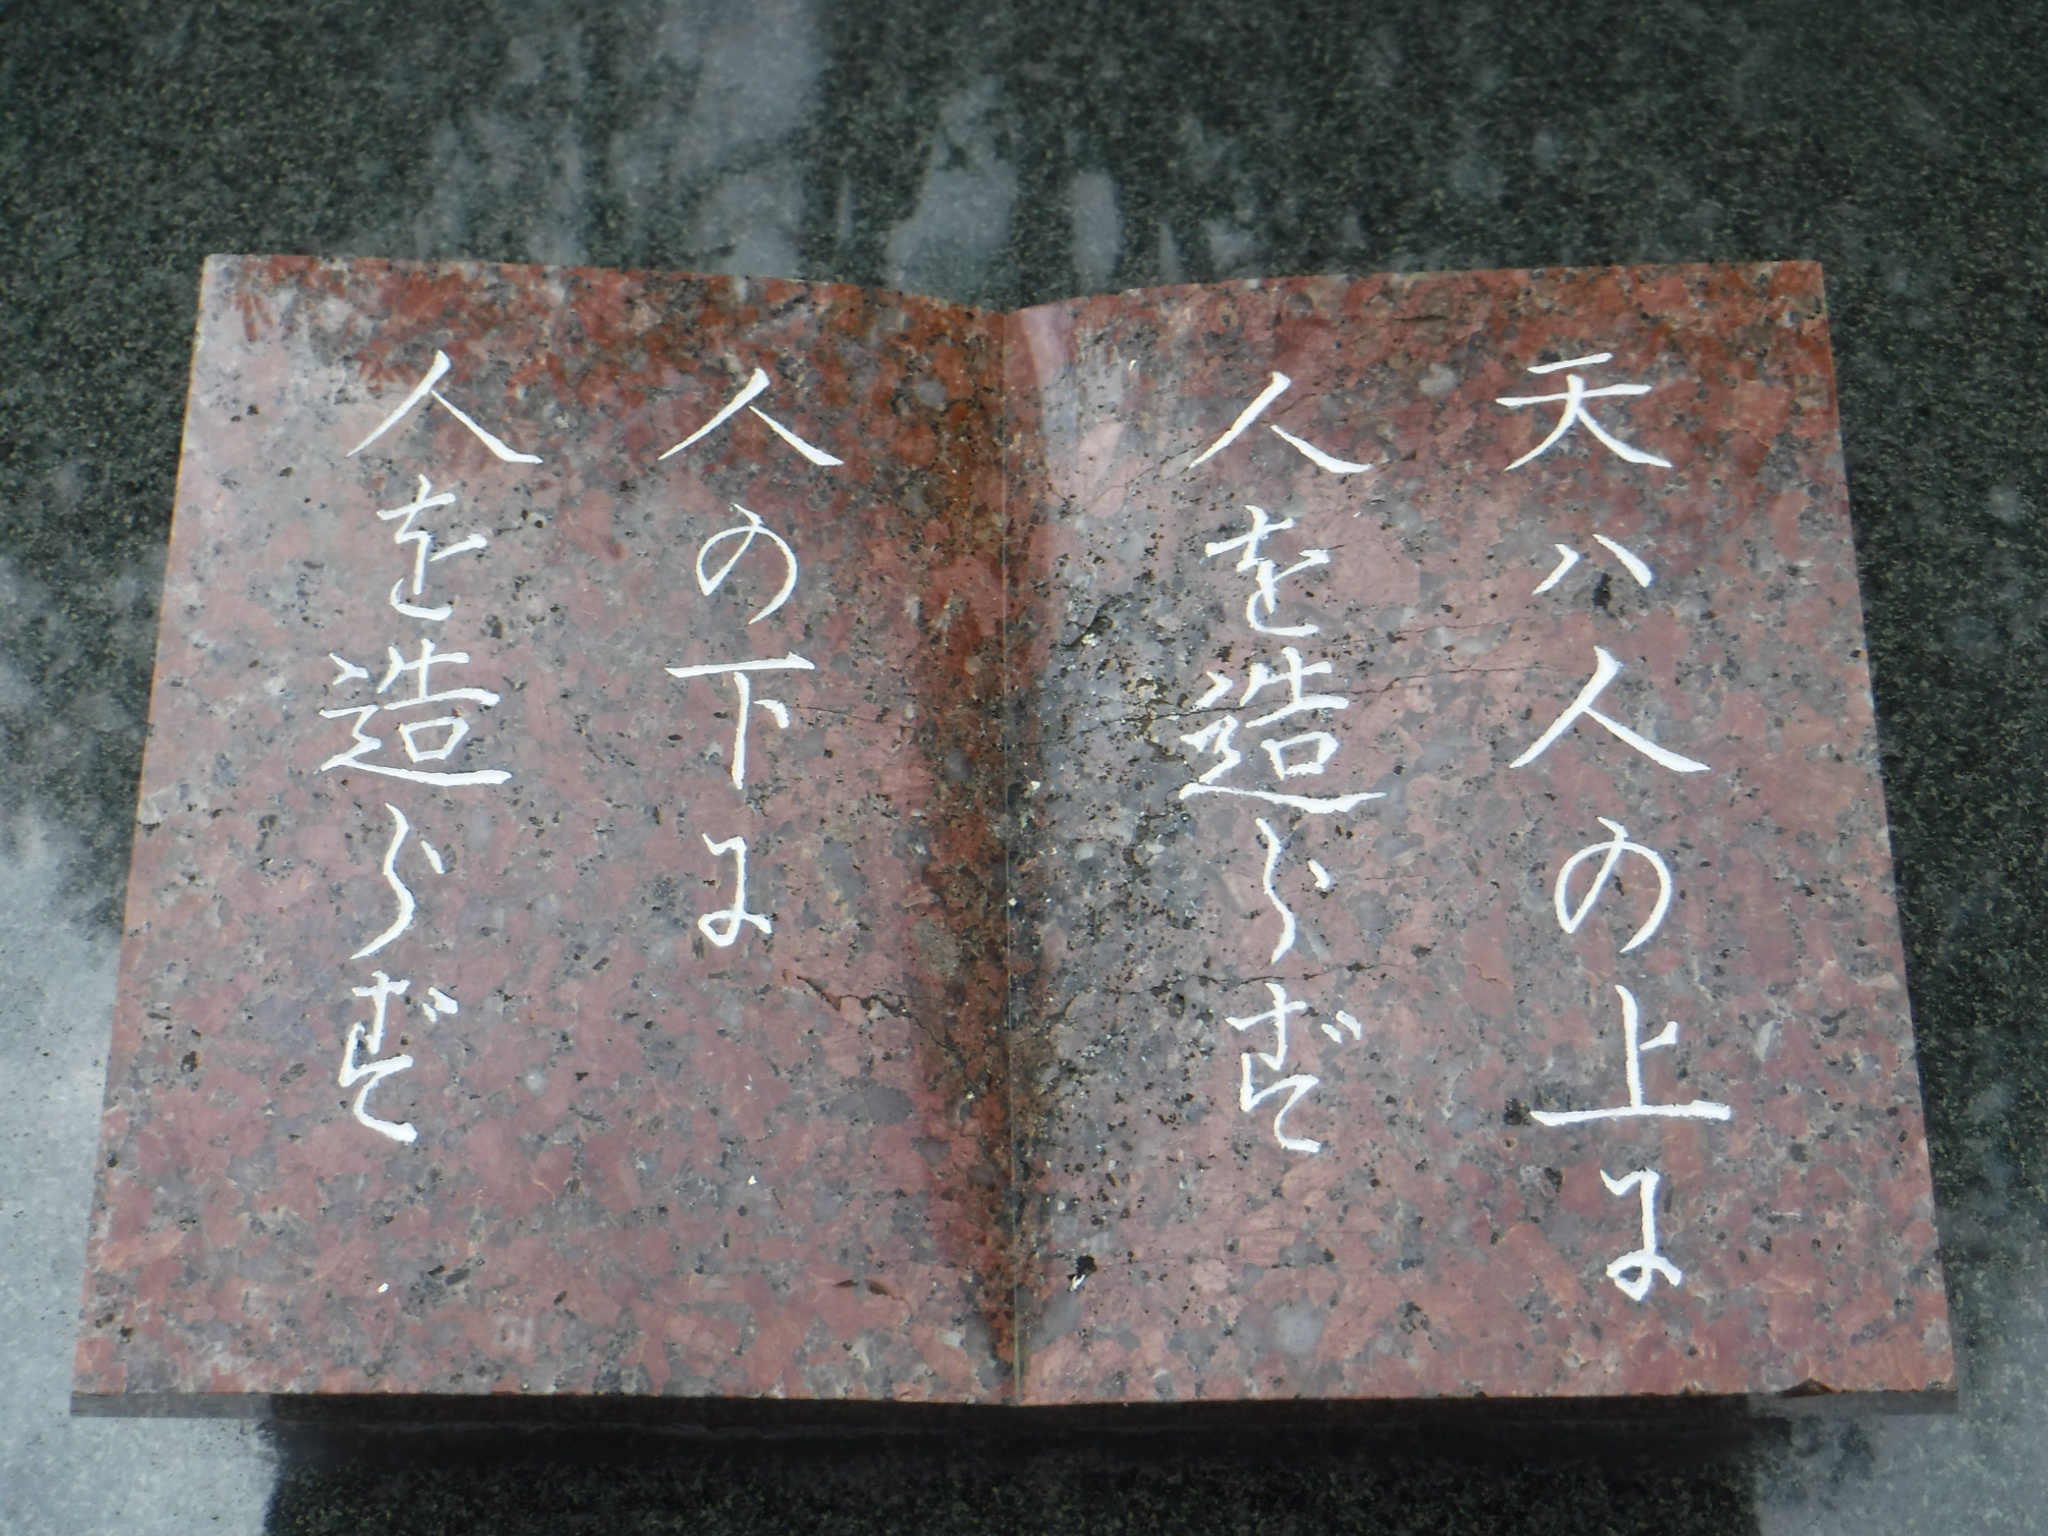 天ハ人の上に
人を造らず
人の下に
人を造らず